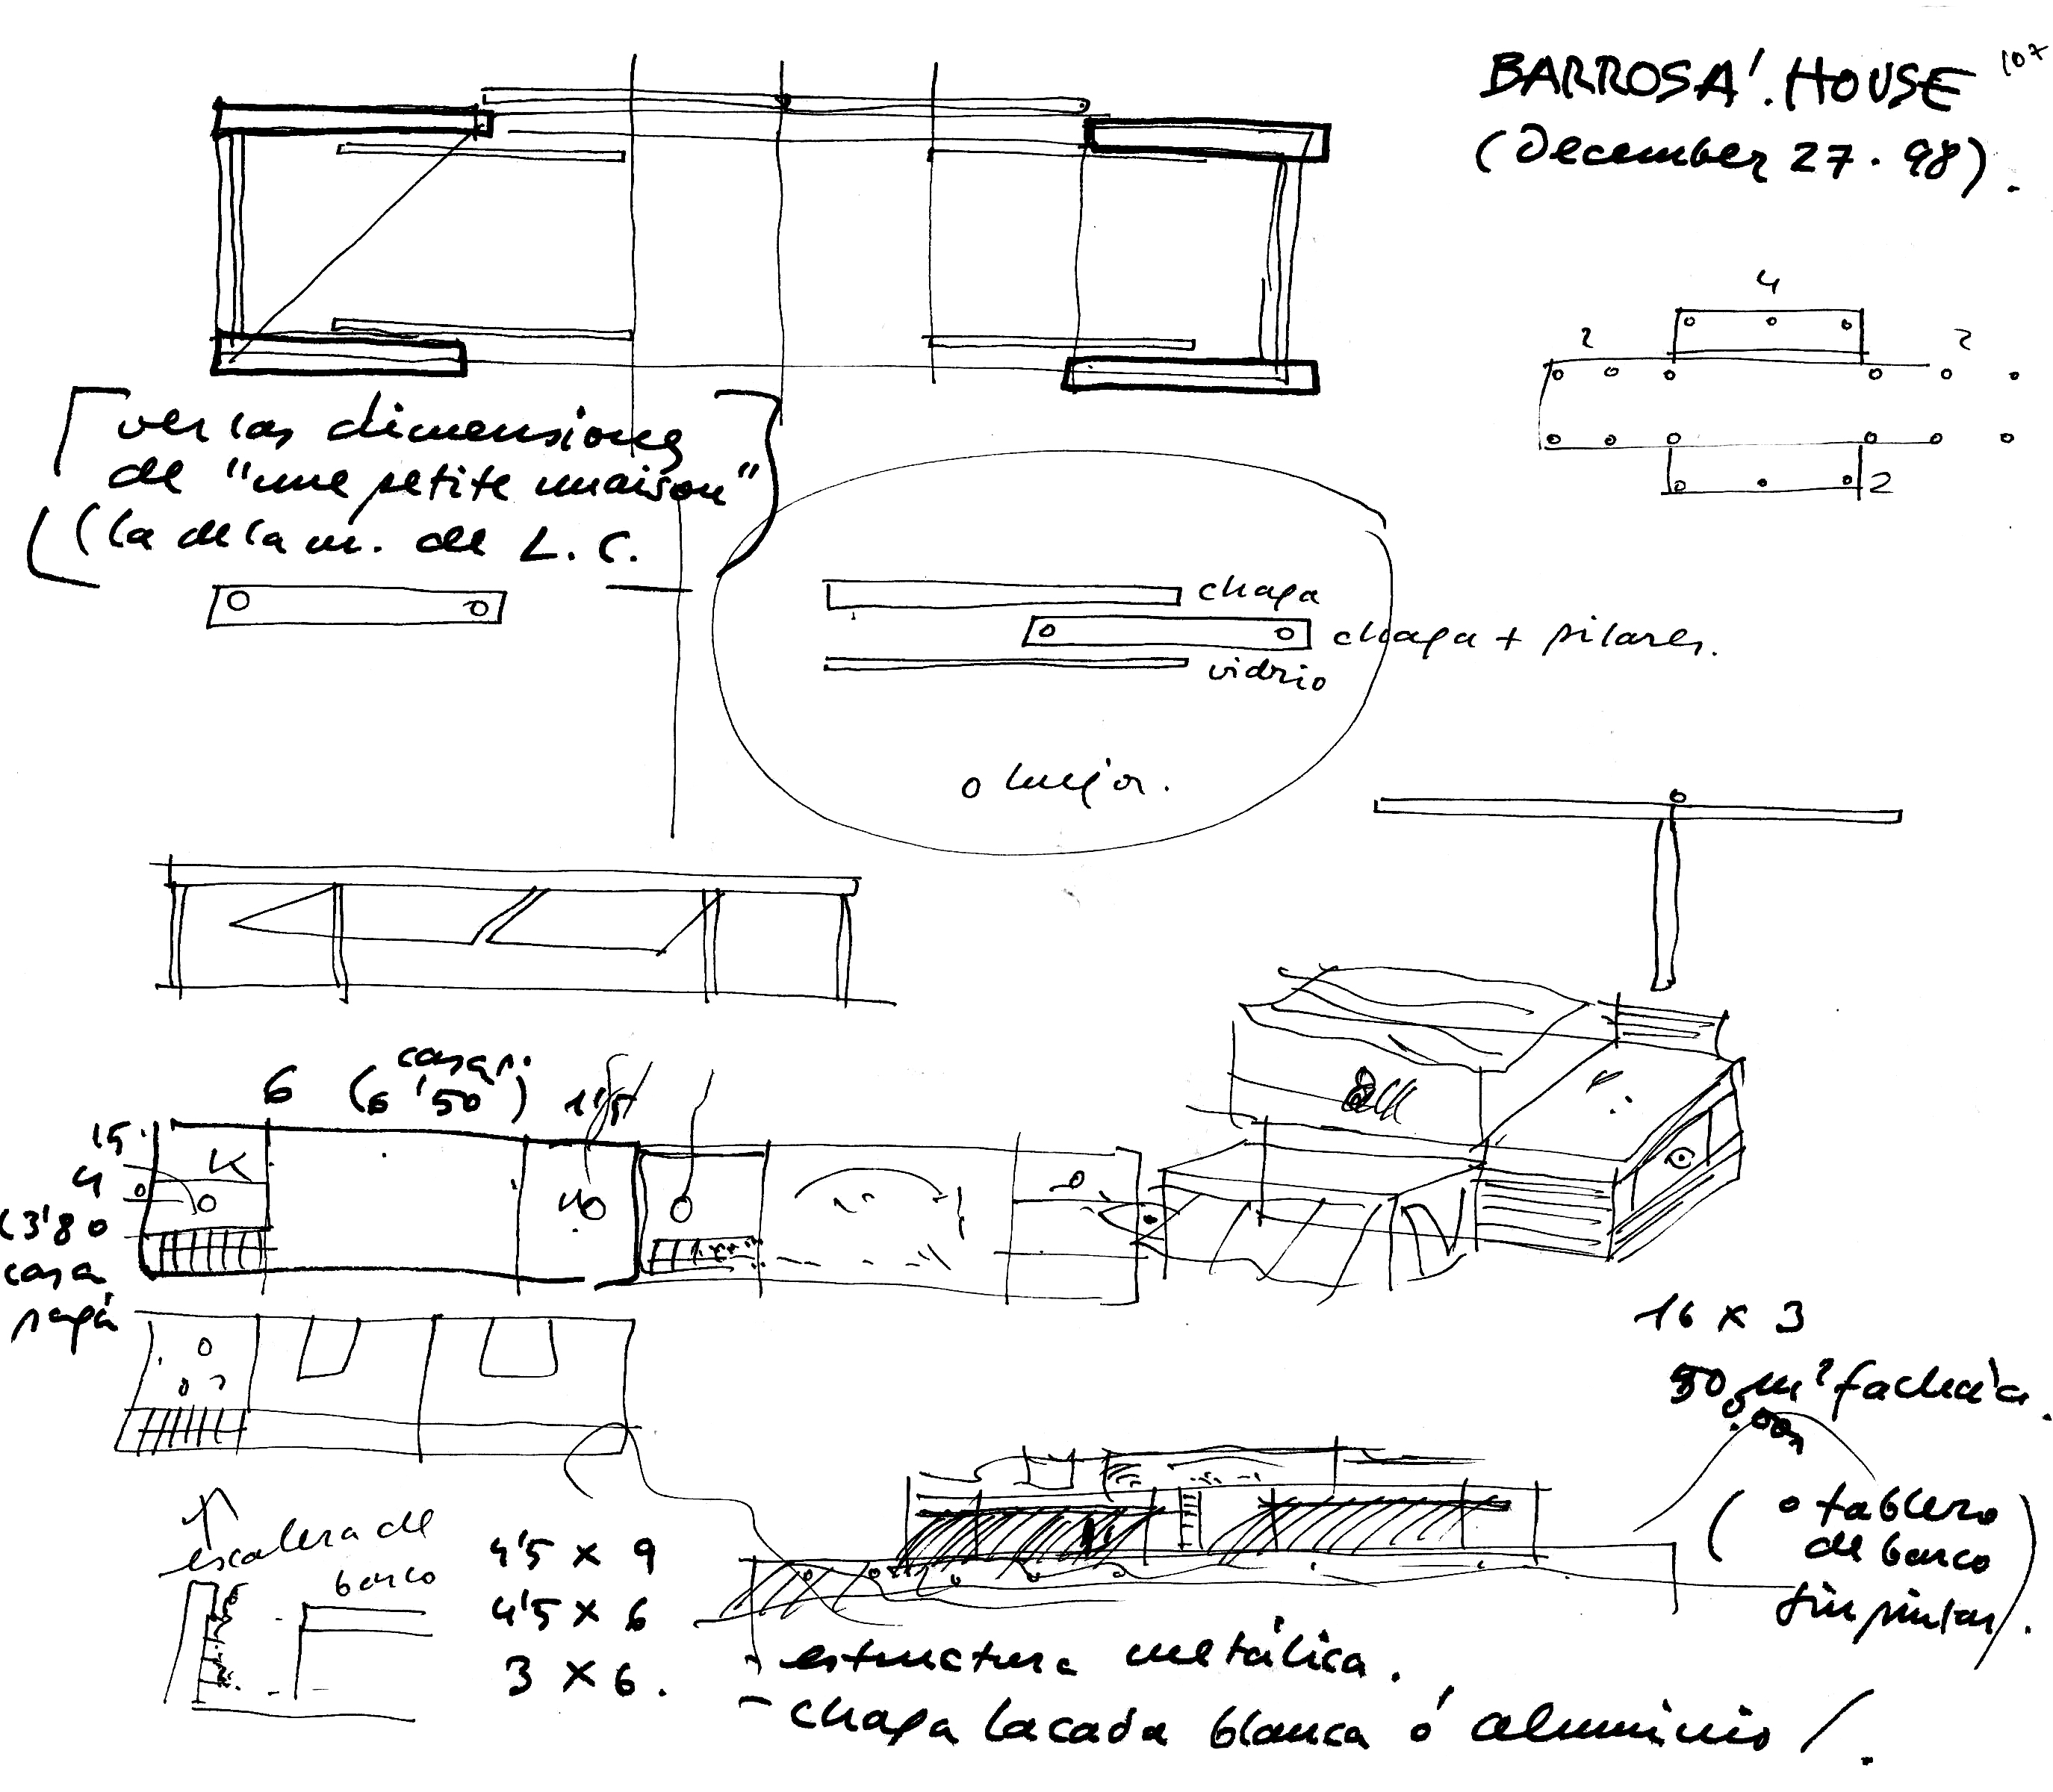 BARROSA'. HOUSE
107
(December 27. 98).
4
2
2
2
ver las dimensiones
de "une petite maison"
(la de la m. de L. C.
chapa
chapa + pilares.
vidrio
o mejor.
6
(6'50)
1'5
15
4
K
(3'80
casa
papá
16 x 3
50 m² fachada.
(o tablero
de barco
sin pintar).
escalera de
barco
4'5 x 9
4'5 x 6
3 x 6.
- estructura metálica.
- chapa lacada blanca ó aluminio /.